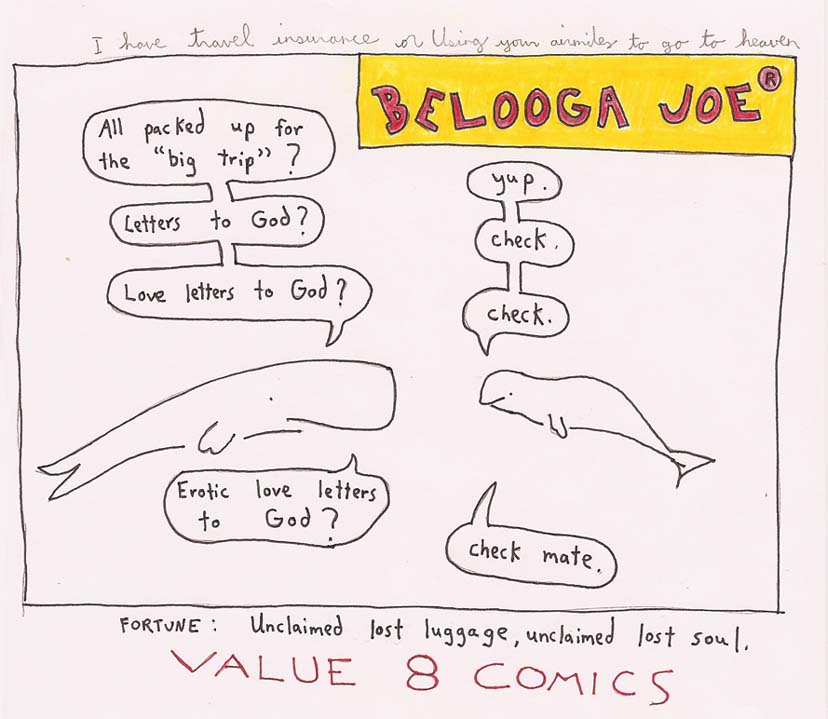 I have travel insurance or Using your airmiles to go to heaven
BELOOGA JOE®
All packed up for
the "big trip"?
yup.
Letters to God?
check.
Love letters to God?
check.
Erotic love letters
to God?
check mate.
FORTUNE: Unclaimed lost luggage, unclaimed lost soul.
VALUE 8 COMICS